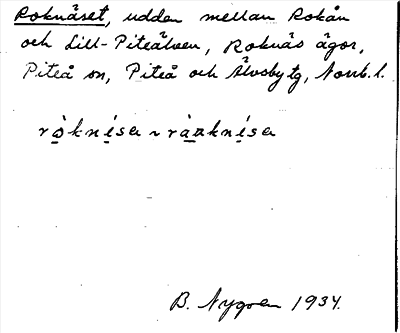 Roknäset, udden mellan Rokån
och Lill-Piteälven, Roknäs ägor,
Piteå sn, Piteå och Älvsby tg, Norrb. l.
B. Nygren 1934.